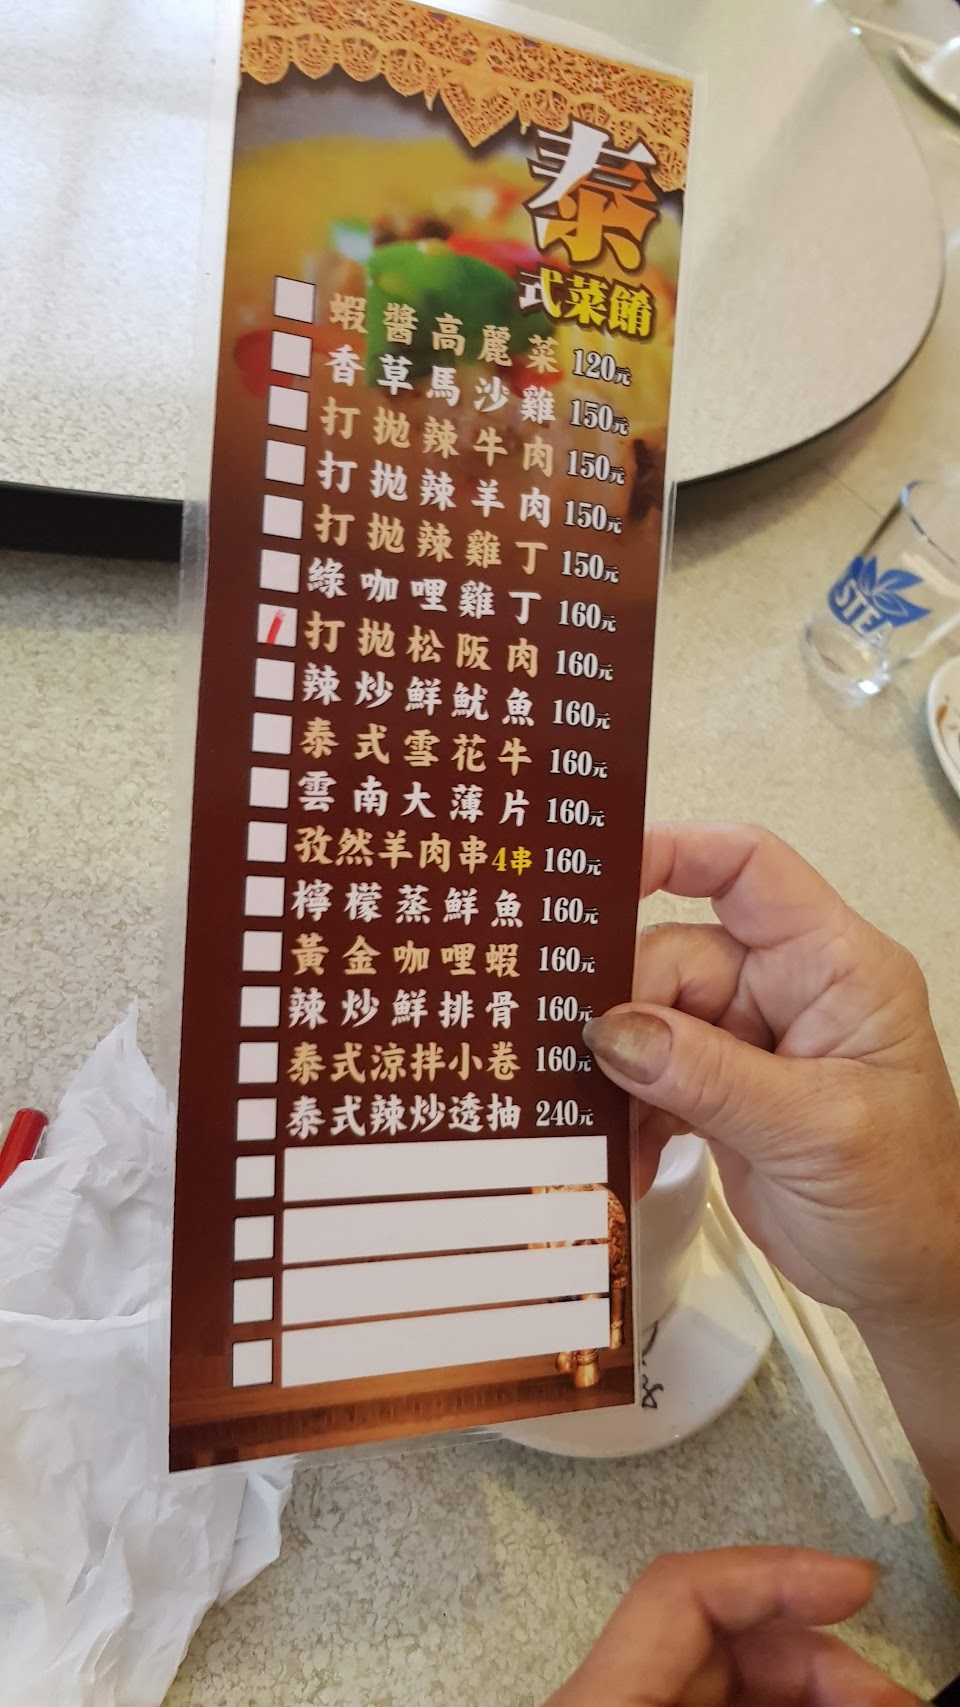 泰
式菜餚
蝦醬高麗菜 120元
香草馬沙雞 150元
打拋辣牛肉 150元
打拋辣羊肉 150元
打拋辣雞丁 150元
綠咖哩雞丁 160元
打拋松阪肉 160元
辣炒鮮魷魚 160元
泰式雪花牛 160元
雲南大薄片 160元
孜然羊肉串4串 160元
檸檬蒸鮮魚 160元
黃金咖哩蝦 160元
辣炒鮮排骨 160元
泰式涼拌小卷 160元
泰式辣炒透抽 240元